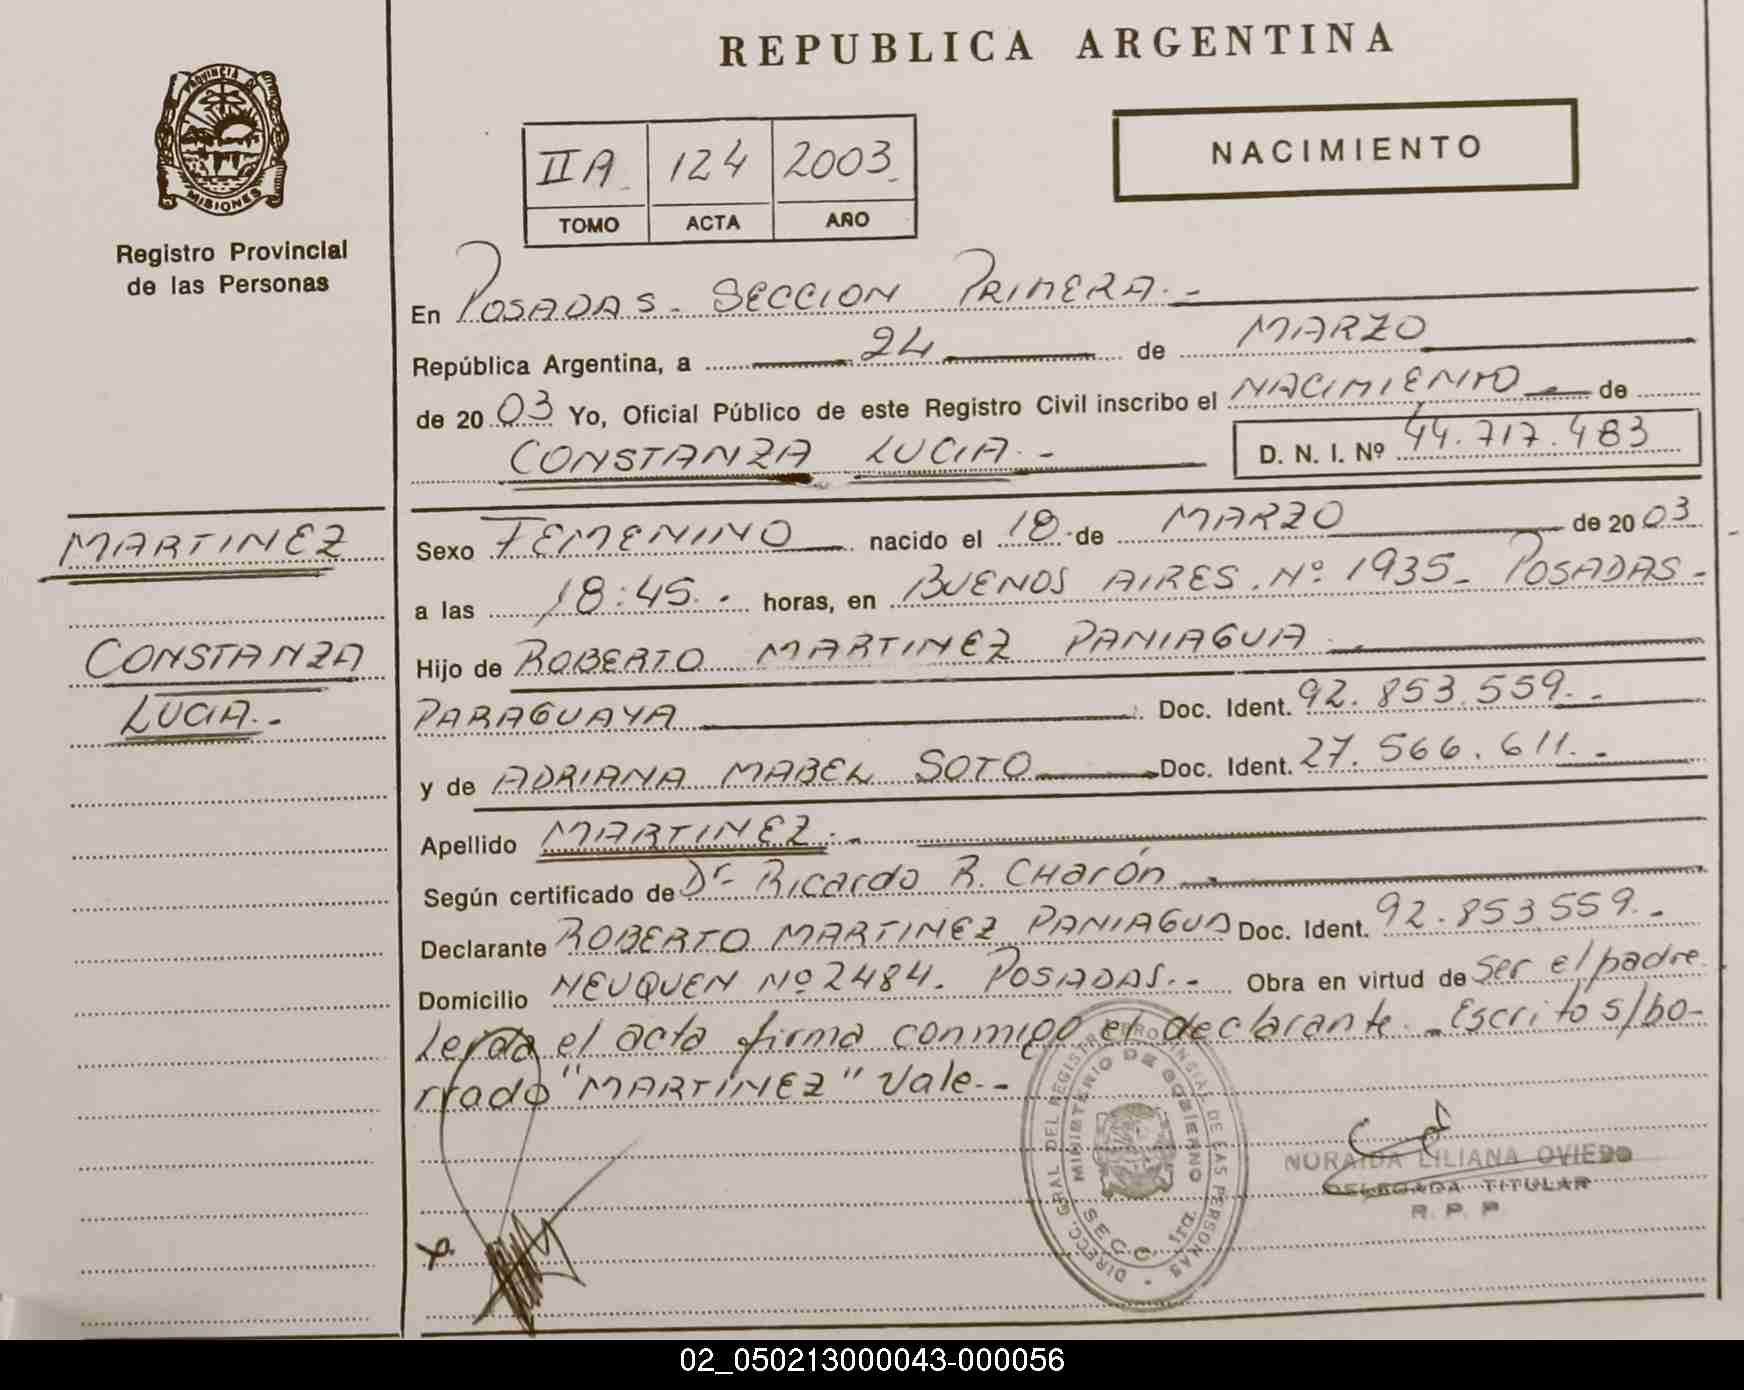 REPUBLICA ARGENTINA
PROVINCIA DE
MISIONES
Registro Provincial
de las Personas
NACIMIENTO
II A. 124 2003.
TOMO ACTA AÑO
En POSADAS. SECCION PRIMERA.-
República Argentina, a 24 de MARZO
de 2003 Yo, Oficial Público de este Registro Civil inscribo el NACIMIENTO de
CONSTANZA LUCIA.- D. N. I. Nº 44.717.483
MARTINEZ
Sexo FEMENINO nacido el 18 de MARZO de 2003
a las 18:45. horas, en BUENOS AIRES. Nº 1935. POSADAS.-
CONSTANZA
Hijo de ROBERTO MARTINEZ PANIAGUA
LUCIA.-
PARAGUAYA Doc. Ident. 92.853.559.-
y de ADRIANA MABEL SOTO Doc. Ident. 27.566.611.-
Apellido MARTINEZ.-
Según certificado de Dr. Ricardo R. CHARÓN
Declarante ROBERTO MARTINEZ PANIAGUA Doc. Ident. 92.853.559.-
Domicilio NEUQUEN Nº 2484. POSADAS.- Obra en virtud de ser el padre.
Leida el acta firma conmigo el declarante. Escrito s/bo-
rrado "MARTINEZ" Vale.-
DIRECC. GRAL. DEL REGISTRO PROVINCIAL DE LAS PERSONAS
MINISTERIO DE GOBIERNO
SECC. 1ra.
NORAIDA LILIANA OVIEDO
DELEGADA TITULAR
R. P. P.
02_050213000043-000056